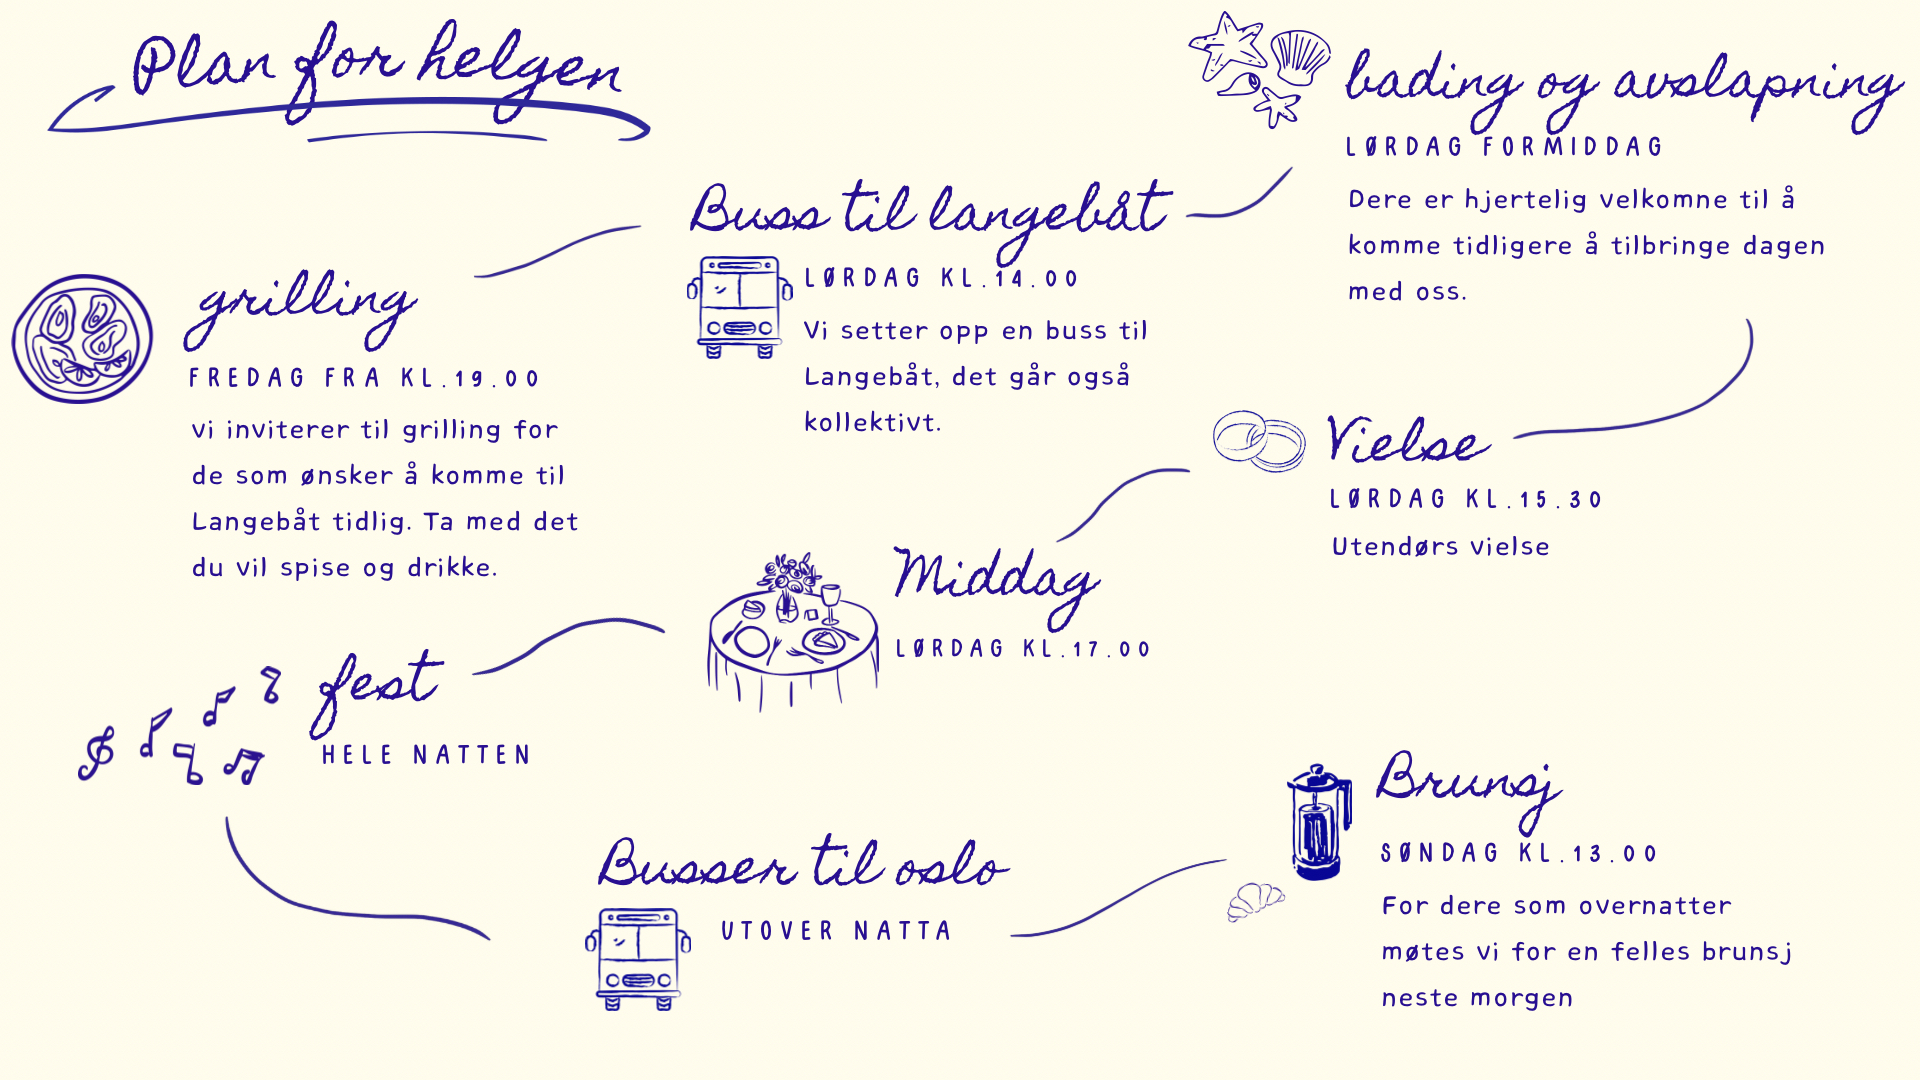 Plan for helgen
grilling
FREDAG FRA KL.19.00
vi inviterer til grilling for
de som ønsker å komme til
Langebåt tidlig. Ta med det
du vil spise og drikke.
Buss til langebåt
LØRDAG KL.14.00
Vi setter opp en buss til
Langebåt, det går også
kollektivt.
bading og avslapning
LØRDAG FORMIDDAG
Dere er hjertelig velkomne til å
komme tidligere å tilbringe dagen
med oss.
Vielse
LØRDAG KL.15.30
Utendørs vielse
Middag
LØRDAG KL.17.00
fest
HELE NATTEN
Busser til oslo
UTOVER NATTA
Brunsj
SØNDAG KL.13.00
For dere som overnatter
møtes vi for en felles brunsj
neste morgen